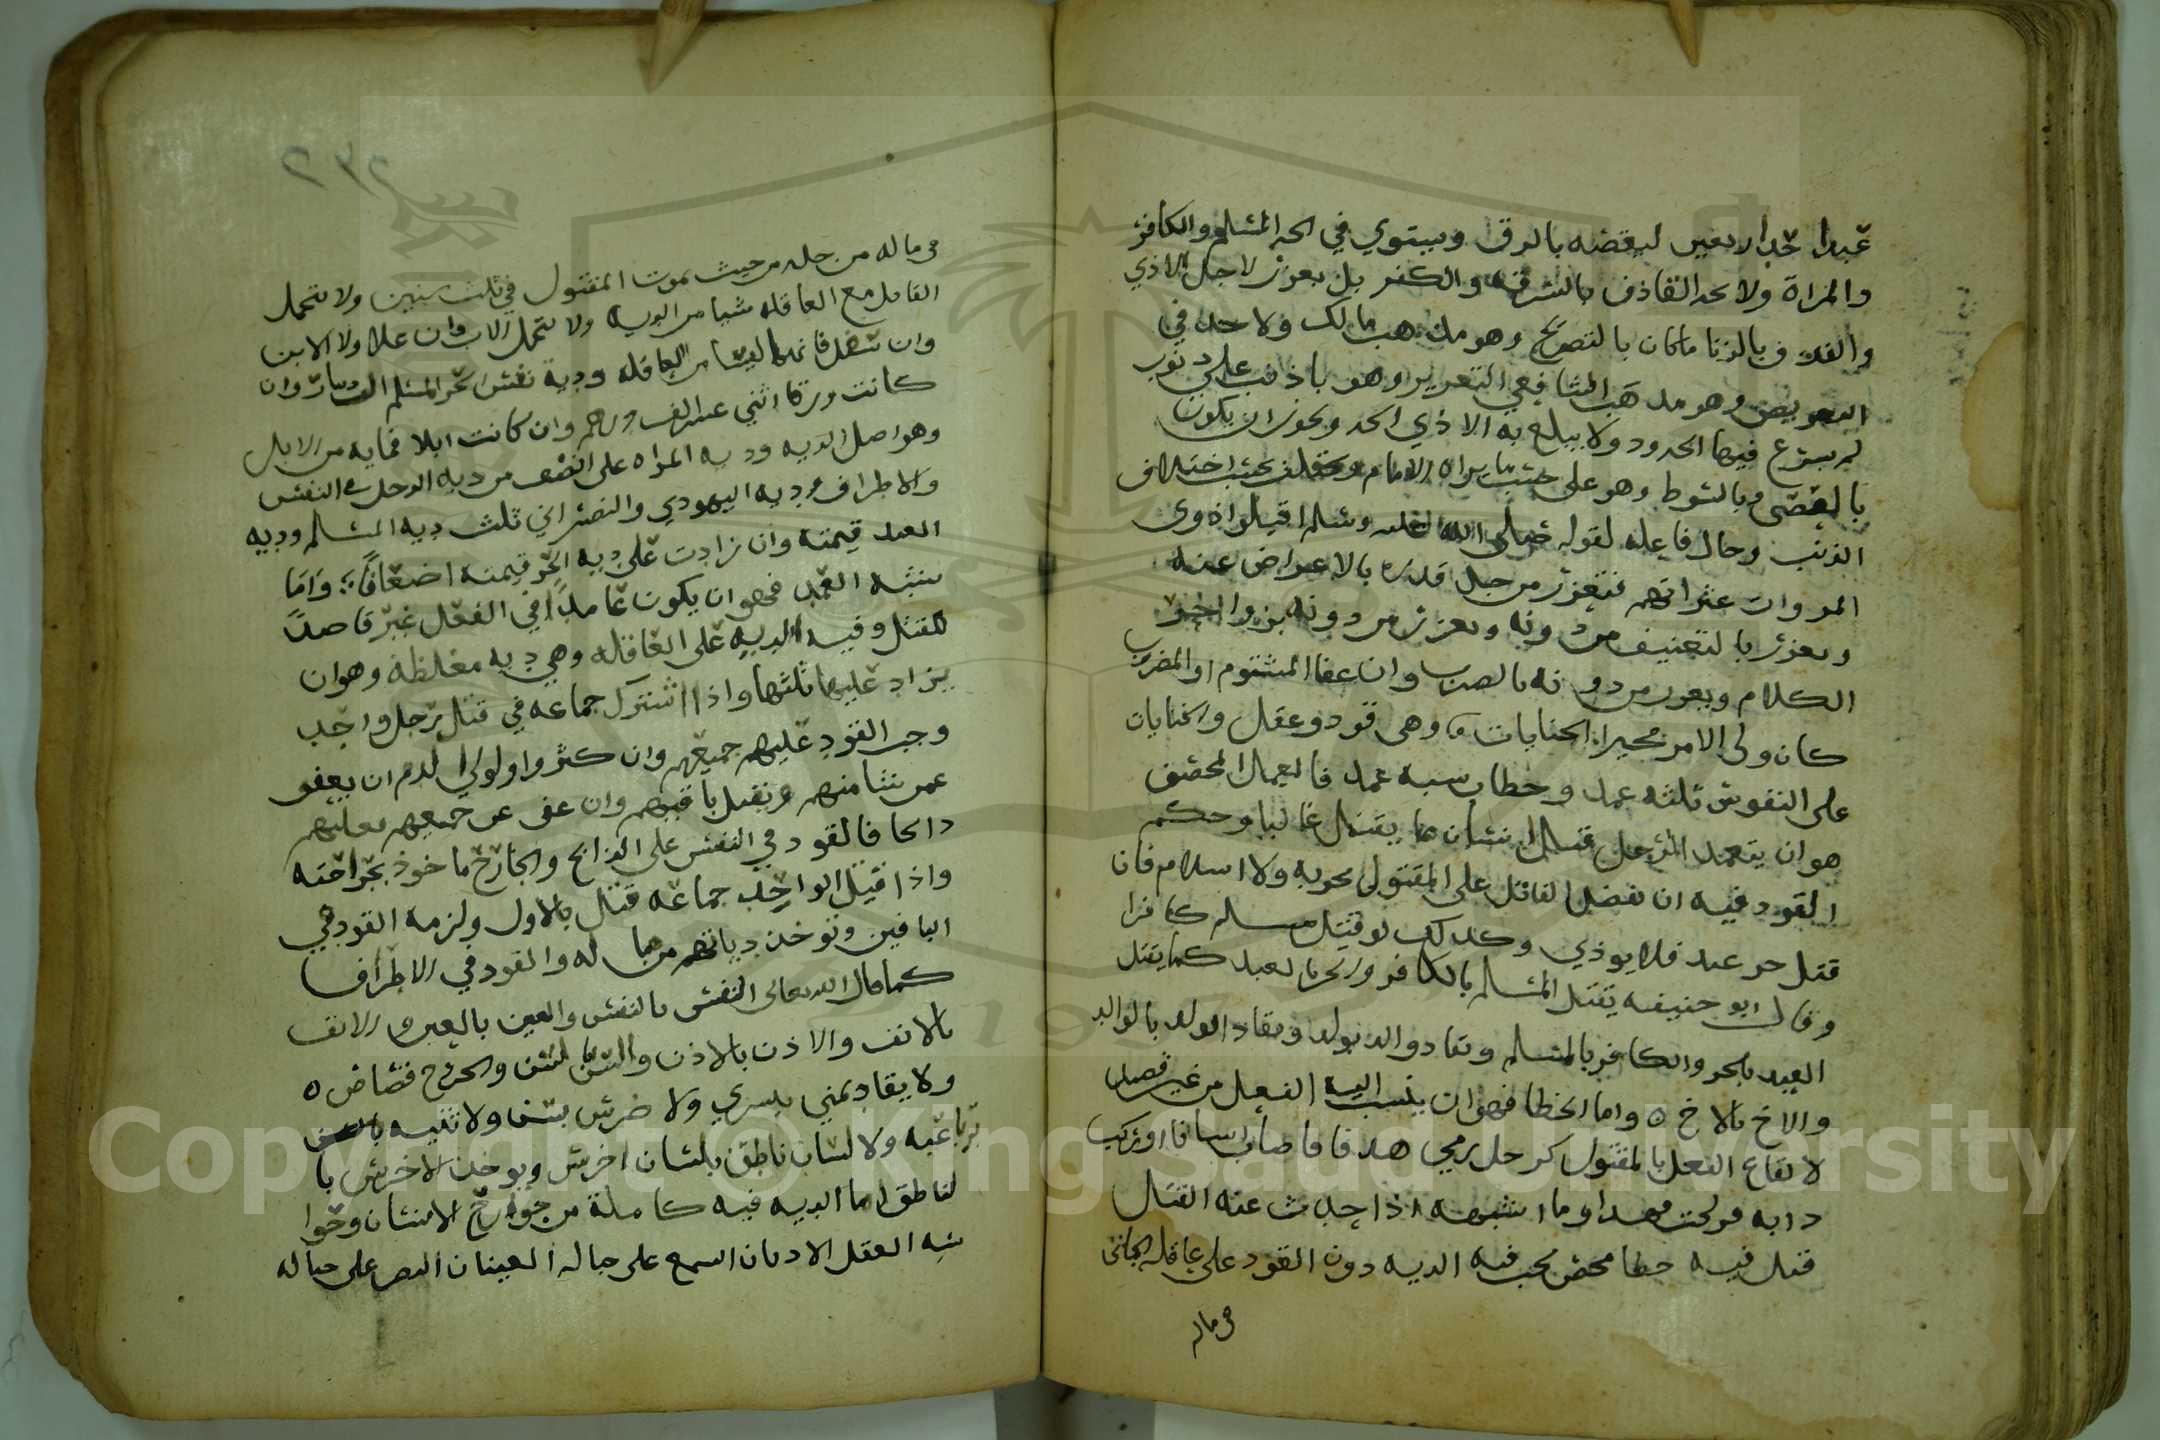 عبدا حد اربعين لنقضه بالرق ويستوي في الحد المسلم والكافر
والمراة ولا يحد القاذف بالسرقه والكفر بل يعزر لاجل الاذي
والقذف بالزنا ماكان بالتصريح وهو مذهب مالك ولا حد في
التعريض وهو مذهب الشافعي التعزير وهو تاديب على ذنوب
لم يشرع فيها الحدود ولا يبلغ به الاذي الحد ويجوز ان يكون
بالعصى وبالسوط وهو على حسب ما يراه الامام ويختلف بحسب اختلاف
الذنب وحال فاعله لقوله صلى الله عليه وسلم اقيلوا ذوى
المروات عثراتهم فتعزر من جل قدره بالاعراض عنه
ويعزر بالتعنيف من دونه ويعزر من دونه بزواجر
الكلام ويعزر من دونه بالضرب وان عفا المشتوم او المضروب
كان ولى الامر مخيرا الجنايات وهى قود وعقل والجنايات
على النفوس ثلثه عمد وخطا وشبه عمد فالعمد المحض
هو ان يتعمد الرجل قتل انسان بما يقتل غالبا وحكمه
القود فيه ان يفضل القاتل على المقتول بحريه ولا اسلام فان
قتل حر عبد فلا يوذي وكذلك لو قتل مسلم كافرا
وقال ابو حنيفه يقتل المسلم بالكافر والحر بالعبد كما يقتل
العبد بالحر والكافر بالمسلم ويقاد والد بولد ويقاد الولد بالوالد
والاخ بالاخ ٥ واما الخطا فهو ان ينسب اليه الفعل من غير قصد
لايقاع الفعل بالمقتول كرجل يرمي هدفا فاصاب انسانا او يركب
دابه فرلحت وما اشبهه اذا حدث عنه القتل
قتل فيه خطا محض يجب فيه الديه دون القود على عاقلة الجاني
فى ماله
٢٣٢
فى ماله من حله من حيث يموت المقتول في ثلث سنين ولا تحمل
القاتل مع العاقله شيا من الديه ولا تحمل الاب وان علا ولا الابن
وان سفل فانهما ليسا من العاقله ودية نفس الحر المسلم الف دينار وان
كانت ورقا اثني عشر الف درهم وان كانت ابلا فمايه من الابل
وهو اصل الديه وديه المراه على النصف من ديه الرجل في النفس
والاطراف وديه اليهودي والنصراني ثلث ديه المسلم وديه
العبد قيمته وان زادت على ديه الحر قيمته اضعافا واما
شبه العمد فهو ان يكون عامدا في الفعل غير قاصدا
للقتل وفيه الديه على العاقله وهي ديه مغلظة وهو ان
يزاد عليها ثلثها واذا اشترك جماعه في قتل رجل واحد
وجب القود عليهم جميعهم وان كثروا ولولي الدم ان يعفو
عمن شا منهم ويقتل باقيهم وان عفى عن جميعهم فعليهم
فالقود في النفس على الذابح والجارح ماخوذ بجراحته
واذا قتل الواحد جماعه قتل بالاول ولزمه القود في
الباقين وتوخذ دياتهم من ماله والقود في الاطراف
كما قال الله تعالى النفس بالنفس والعين بالعين والانف
بالانف والاذن بالاذن والسن بالسن والجروح قصاص ٥
ولا يقاد يمني بيسري ولا ضرس بسن ولا ثنيه
برباعيه ولا لسان ناطق بلسان اخرس ويوخذ الاخرس با
لناطق اما الديه فيه كاملة من جوارح الانسان وحوا
سه العقل الاذنان السمع على حاله العينان البصر على حاله